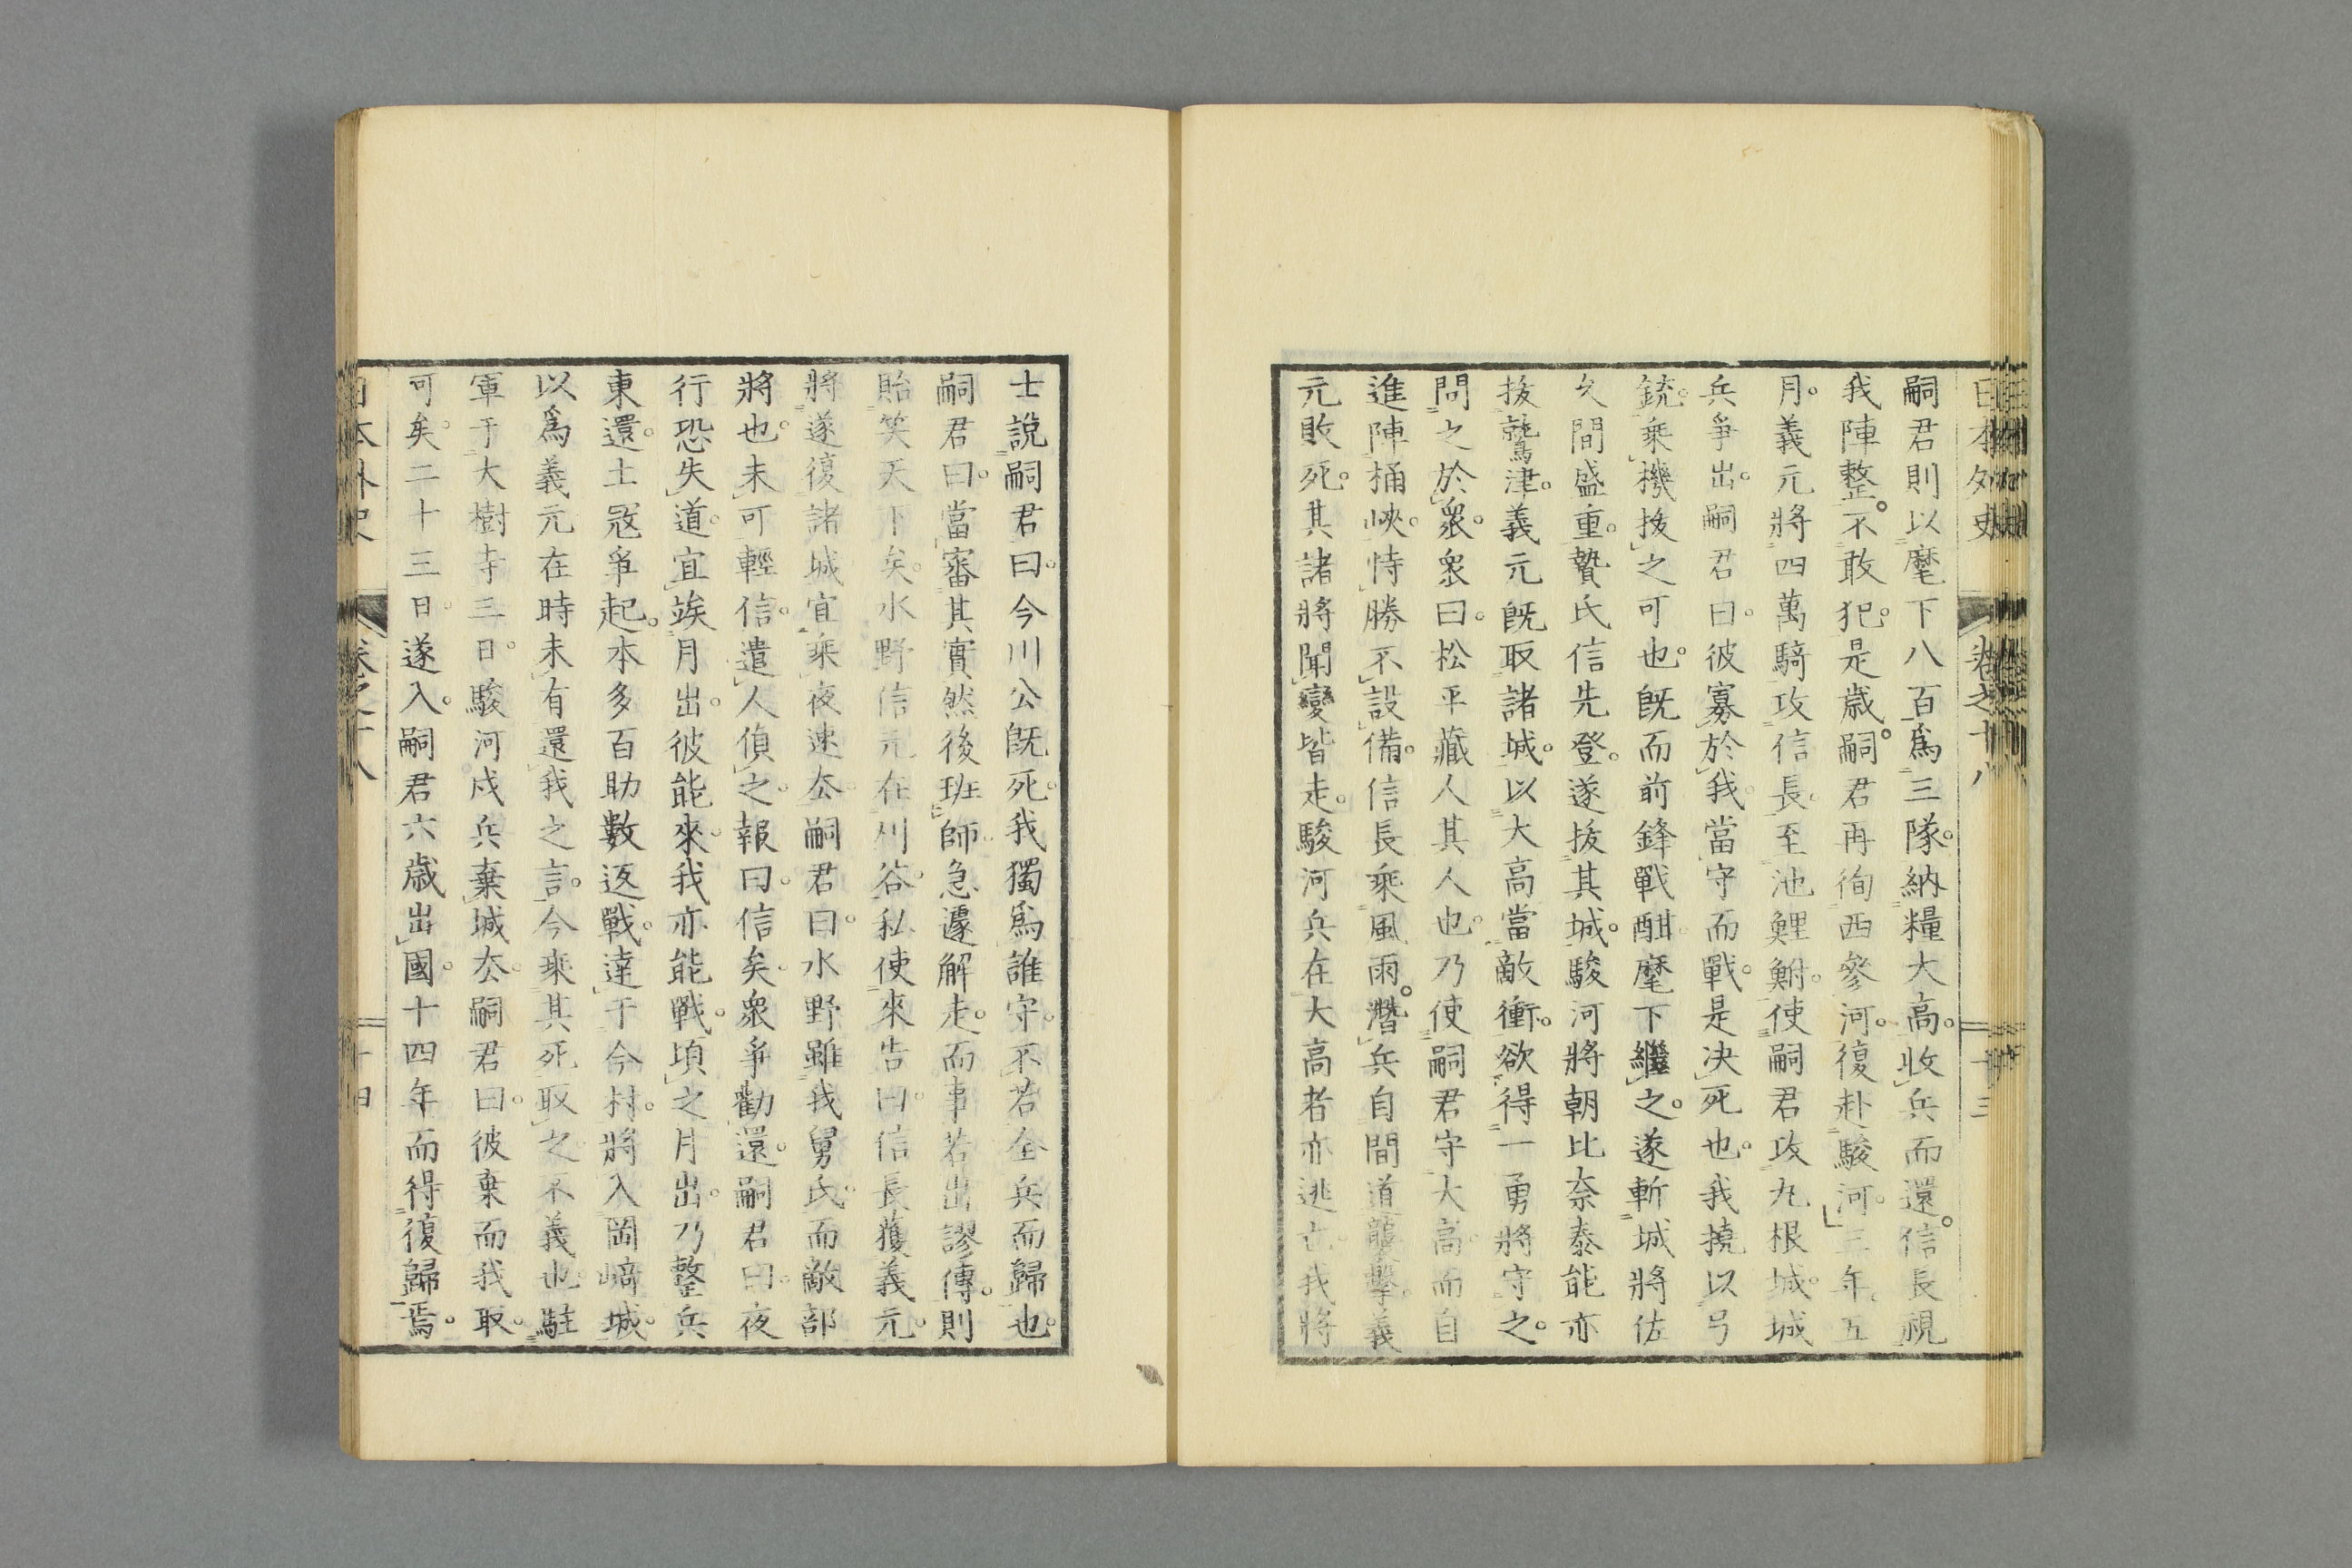 日本外史 卷之十八 十三
嗣君則以麾下八百爲三隊。納糧大高。收兵而還。信長視
我陣整。不敢犯。是歳。嗣君再徇西參河。復赴駿河。三年。五
月。義元將四萬騎攻信長。至池鯉鮒。使嗣君攻丸根城。城
兵爭出。嗣君曰。彼寡於我。當守而戰。是决死也。我撓以弓
銃。乘機抜之可也。既而前鋒戰酣。麾下繼之。遂斬城將佐
久間盛重。贄氏信先登。遂抜其城。駿河將朝比奈泰能亦
抜鷲津。義元既取諸城。以大高當敵衝。欲得一勇將守之。
問之於衆。衆曰。松平藏人其人也。乃使嗣君守大高。而自
進陣桶峽。恃勝不設備。信長乘風雨。潛兵自間道襲擊。義
元敗死。其諸將聞變皆走。駿河兵在大高者亦逃亡。我將
士說嗣君曰。今川公既死。我獨爲誰守。不若全兵而歸也。
嗣君曰。當審其實然後班師。急遽解走。而事若出謬傳。則
貽笑天下矣。水野信元在刈谷。私使來告曰。信長獲義元。
將遂復諸城。宜乘夜速去。嗣君曰。水野雖我舅氏。而敵部
將也。未可輕信。遣人偵之。報曰。信矣。衆爭勸還。嗣君曰。夜
行恐失道。宜竢月出。彼能來。我亦能戰。頃之月出。乃整兵
東還。土冦爭起。本多百助數返戰。達于今村。將入岡﨑城。
以爲義元在時未有還我之言。今乘其死取之不義也。駐
軍于大樹寺三日。駿河戍兵棄城去。嗣君曰。彼棄而我取。
可矣。二十三日。遂入。嗣君六歳出國。十四年而得復歸焉。
日本外史 卷之十八 十四